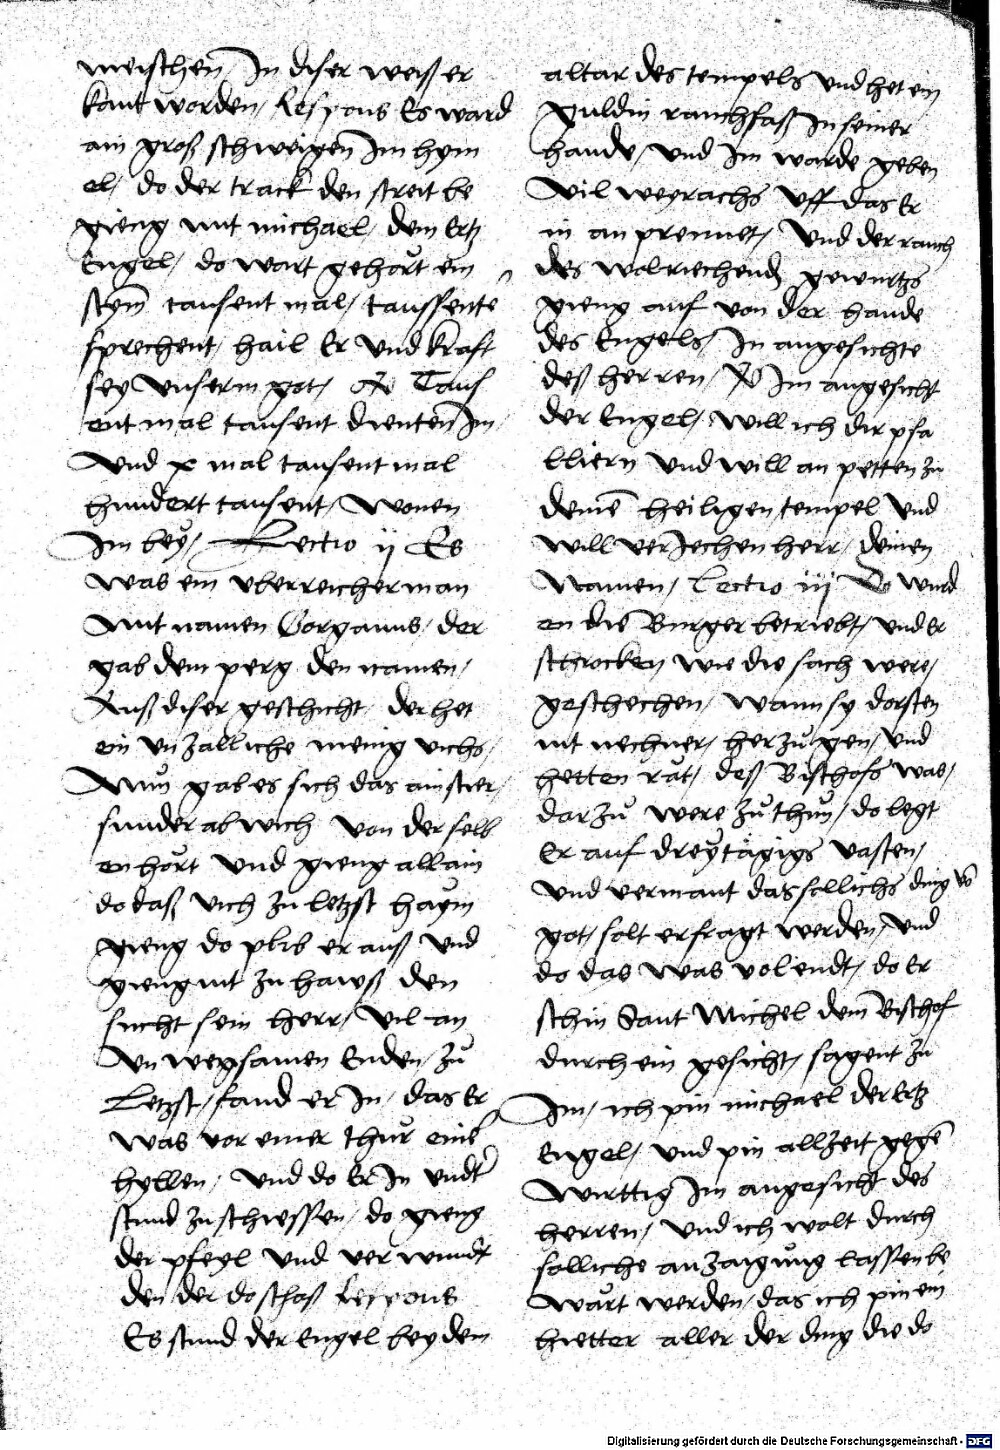 menschen / In diser weiß er
kant worden / Respons Es ward
ain groß schweigen Im hym
el / do der track den streit be
gieng mit michael / dem Ertz
Engel / do wart gehört ein
stym tausent mal / taussente
sprechent / hail Er Vnd kraft
sey Vnserm got / Taus
ent mal tausent dienten Im /
Vnd x mal tausent mal
hundert tausent / Wonen
Im bey / Lectio ij Es
was ein vberreicher man
mit namen Gorganus / der
gab dem perg den namen /
Auß diser geschicht / der het
ein Vnzalliche menig vichs /
Nun gab es sich das ain stier /
sunder abwich von der selb
en hört Vnd gieng allain
do daß Vich zu letzst haym
gieng do plib er auß Vnd
gieng nit zu hawß den
sucht sein herr / Vil an
Vn wegsamen Enden / zu
Letzst / fand er In / das Er
was vor einer thür eins
hyllen / Vnd do Er In vndter
stund zu schiessen / do gieng
der pfeyl Vnd ver wundt
den der do schoß Respons
Es stund der Engel bey dem
altar des tempels Vnd het ein
guldin rauchfaß In seiner
hande / Vnd Im warde geben
Vil weyrachs Vff das Er
in an prennet / Vnd der rauch
des wolriechends gewurtzs
gieng auf von der hande
des Engels / In angesichte
deß herren / Im angesicht
der Engel / will ich dir psa
lliern Vnd will an petten zu
deinem heiligen tempel Vnd
will verJechen herr / deinen
Namen / Lectio iij Do wurd
en die Burger betriebt / vnd Er
schrocken wie die sach were /
geschechen / wann sy dorsten
nit nechner / herzu gen / Vnd
hetten rat / deß Bischofs was /
dar zu were zu thun / do legt
Er auf dreytägigs vasten /
Vnd vermant das sollichs ding von
got / solt erfragt werden / Vnd
do das was volendt / do Er
schin Sant Michel dem Bischof
durch ein gesicht / sagent zu
Im / ich pin michael der Ertz
Engel / vnd pin allzeit gegen
wirttig Im angesicht des
herren / Vnd ich wolt durch
solliche anzaigung lassen be
wart werden / das ich pin ein
hietter aller der ding die do
Digitalisierung gefördert durch die Deutsche Forschungsgemeinschaft - DFG